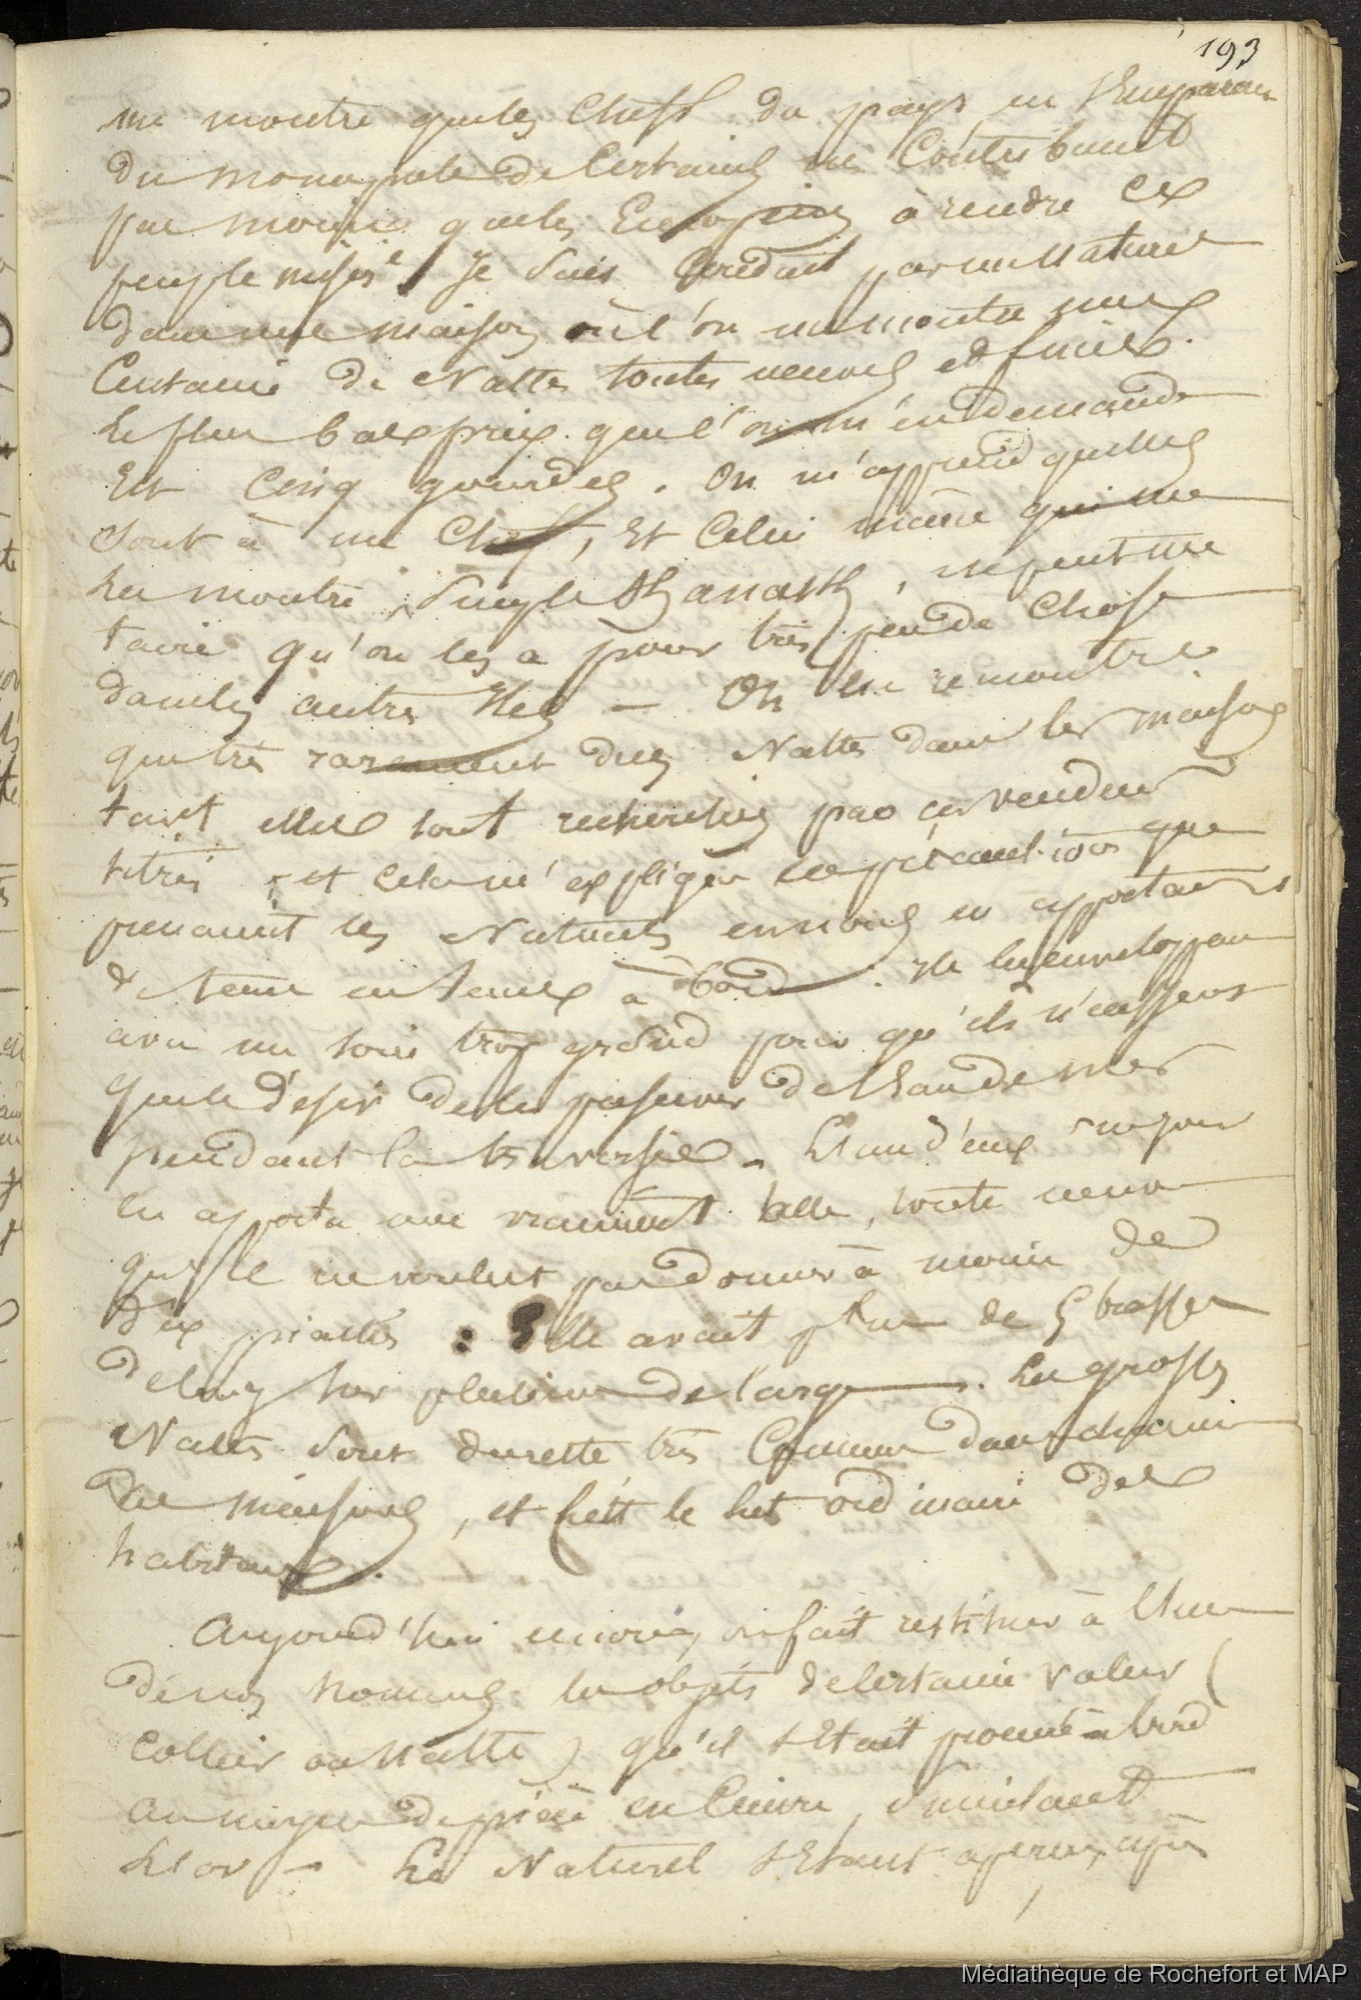 193
me montre que les Chefs du pays en s'Emparant
du monopole de Certains ne Contribuent
pas moins que les Européens à rendre ce
peuple misér.e Je suis Conduit par un Naturel
dans une maison où l'on me montre une
Centaine de Nattes toutes neuves et fines.
Le plus bas prix que l'on m'en demande
Est Cinq gourdes. On m'apprend quelles
sont à un Chef, Et Celui même qui me
les montre, simple, ne peut me
taire qu'on les a pour très peu de Chose
dans les autres Iles — On ne remontre
que très rarement des Nattes dans les maisons
tant elles sont recherchées par ces vendeurs
titrés, et cela m'explique les précautions que
prenaient les Naturels en nous en apportant
de temps en temps à bord. Ils les enveloppaient
avec un soin trop grand pour qu'ils n'eussent
que le désir de les préserver de l'Eau de mer
pendant la traversée. L'un d'eux un jour
en apporta une vraiment belle, toute neuve
qu'il ne voulut pas donner à moins de
dix piastres : Elle avait plus de 5 brasses
de long sur plusieurs de large. Les grosses
Nattes sont du reste très Communes dans chacune
des maisons, et c'est le lit ordinaire des
habitans.
Aujourd'hui encore, on fait restituer à l'un
de nos hommes les objets de certaine valeur (
collier ou Natte) qu'il s'Etait procuré à bord
au moyen de pièces en Cuivre, simulant
l'or — Le Naturel s'Etant aperçu, après
Médiathèque de Rochefort et MAP